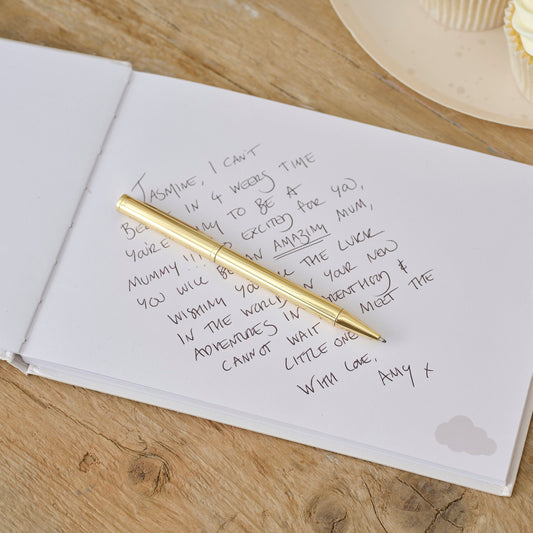 JASMINE, I CAN'T
BE IN 4 WEEKS TIME
YOU'RE TO BE A
MUMMY !!! EXCITED FOR YOU,
YOU WILL BE AN AMAZING MUM,
WISHING YOU THE LUCK
IN THE WORLD IN YOUR NEW
ADVENTURES IN &
CANNOT WAIT MEET THE
LITTLE ONE
WITH LOVE, AMY X